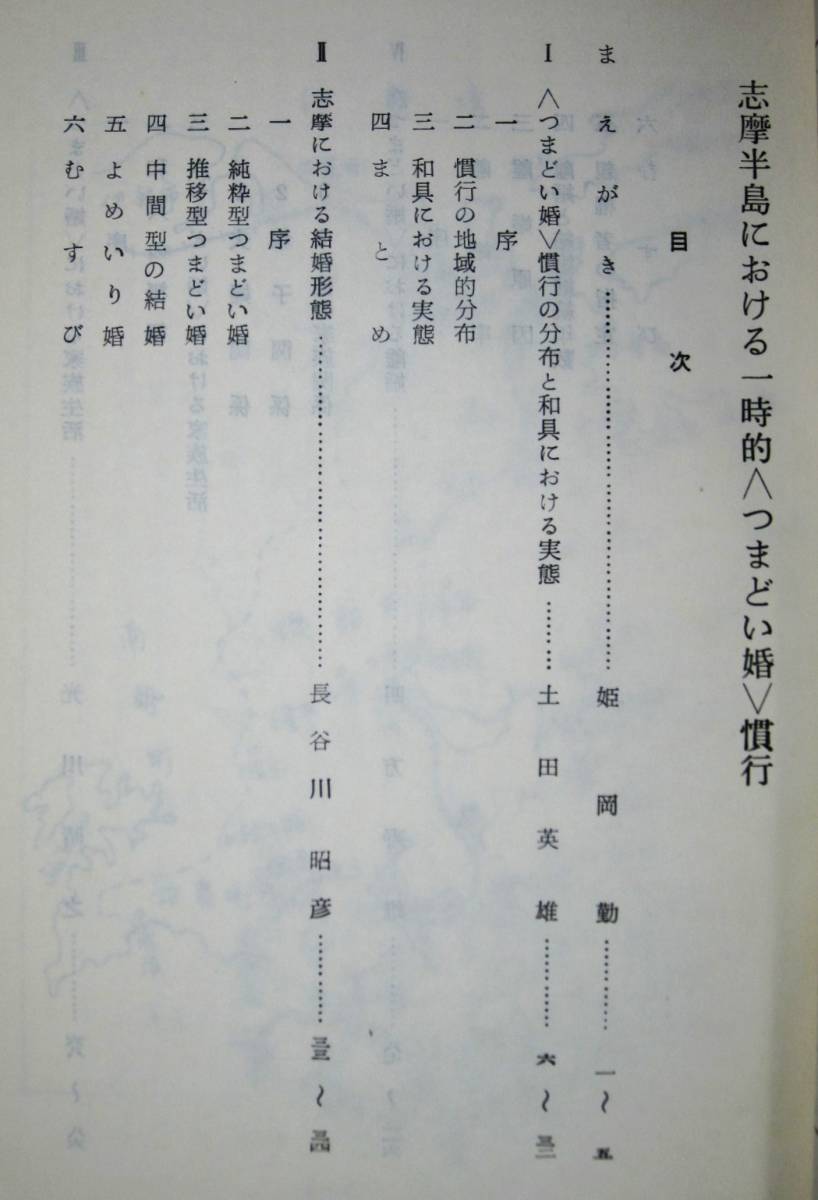 志摩半島における一時的＜つまどい婚＞慣行
目次
まえがき……………………………………姫岡勤…………一〜五
Ⅰ ＜つまどい婚＞慣行の分布と和具における実態………土田英雄…………六〜三二
一 序
二 慣行の地域的分布
三 和具における実態
四 まとめ
Ⅱ 志摩における結婚形態……………………………………長谷川昭彦…………
一 序
二 純粋型つまどい婚
三 推移型つまどい婚
四 中間型の結婚
五 よめいり婚
六 むすび